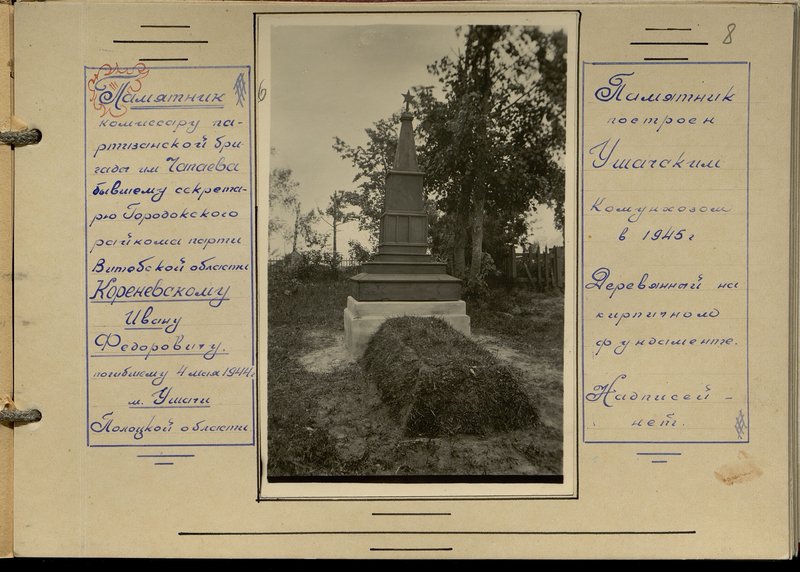 8
6
Памятник
комиссару па-
ртизанской бри-
гада им Чапаева
бывшему секрета-
рю Городокского
райкома парти
Витебской области
Кореневскому
Ивану
Федоровичу.
погибшему 4 мая 1944г
м. Ушачи
Полоцкой области
Памятник
построен
Ушачским
Комунхозом
в 1945г
Деревянный на
кирпичном
фундаменте.
Надписей –
нет.